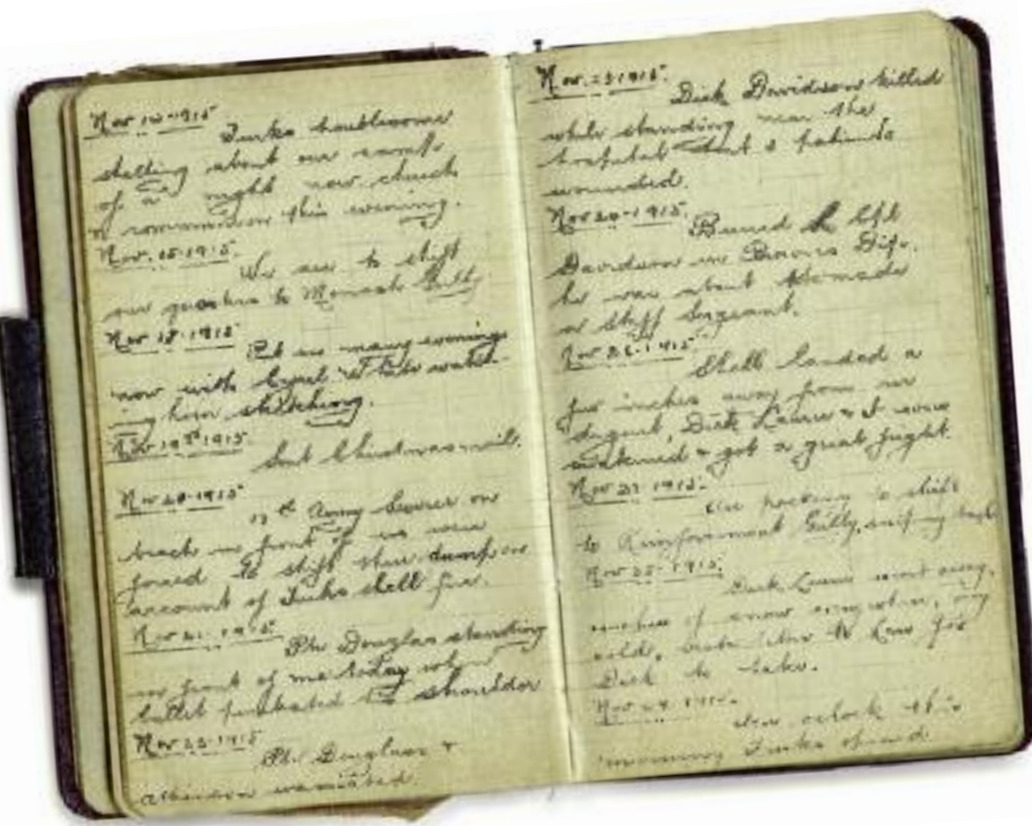 Nov 14-1915
Turks troublesome
shelling about our camp
of a night now church
& communion this evening.
Nov. 15-1915.
We are to shift
our quarters to Monash Gully
Nov 18-1915
Put in many evenings
now with Cyril watch-
ing him sketching.
Nov 19th 1915
Sent Christmas mail.
Nov 20-1915
Army Service on
beach in front of us were
forced to shift their dump on
account of Turks shell fire.
Nov 21-1915
Pte Douglas standing
in front of me today when
bullet shoulder
Nov 22-1915
Pte Douglas &
Atkinson
Nov. 23 1915.
Dick Davidson killed
while standing near the
hospital tent 2 patients
wounded.
Nov 24-1915.
Buried Cpl
Davidson in Browns Dip.
he was about to be made
a Staff Sergeant.
Nov 26-1915
Shell landed a
few inches away from our
dugout, Dick Laurie & I were
& got a great fright.
Nov 27 1915.
Are packing to shift
to Reinforcement Gully,
Nov 28-1915.
Dick Laurie went away.
inches of snow everywhere, very
cold, for
Dick to take.
Nov 29 1915.
oclock this
morning Turks opened